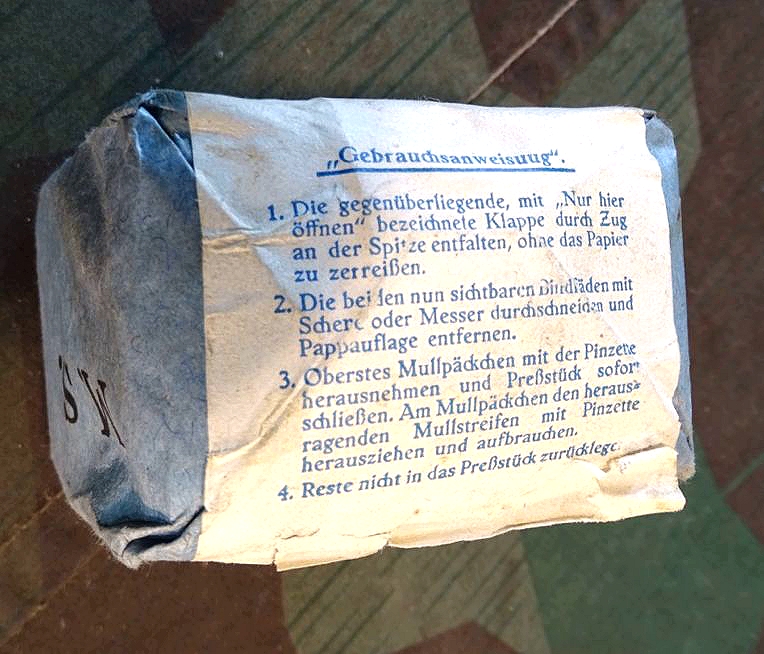 „Gebrauchsanweisuug".
1. Die gegenüberliegende, mit „Nur hier
öffnen" bezeichnete Klappe durch Zug
an der Spitze entfalten, ohne das Papier
zu zerreißen.
2. Die beiden nun sichtbaren Bindfäden mit
Schere oder Messer durchschneiden und
Pappauflage entfernen.
3. Oberstes Mullpäckchen mit der Pinzette
herausnehmen und Preßstück sofort
schließen. Am Mullpäckchen den heraus-
ragenden Mullstreifen mit Pinzette
herausziehen und aufbrauchen.
4. Reste nicht in das Preßstück zurücklegen.
S M